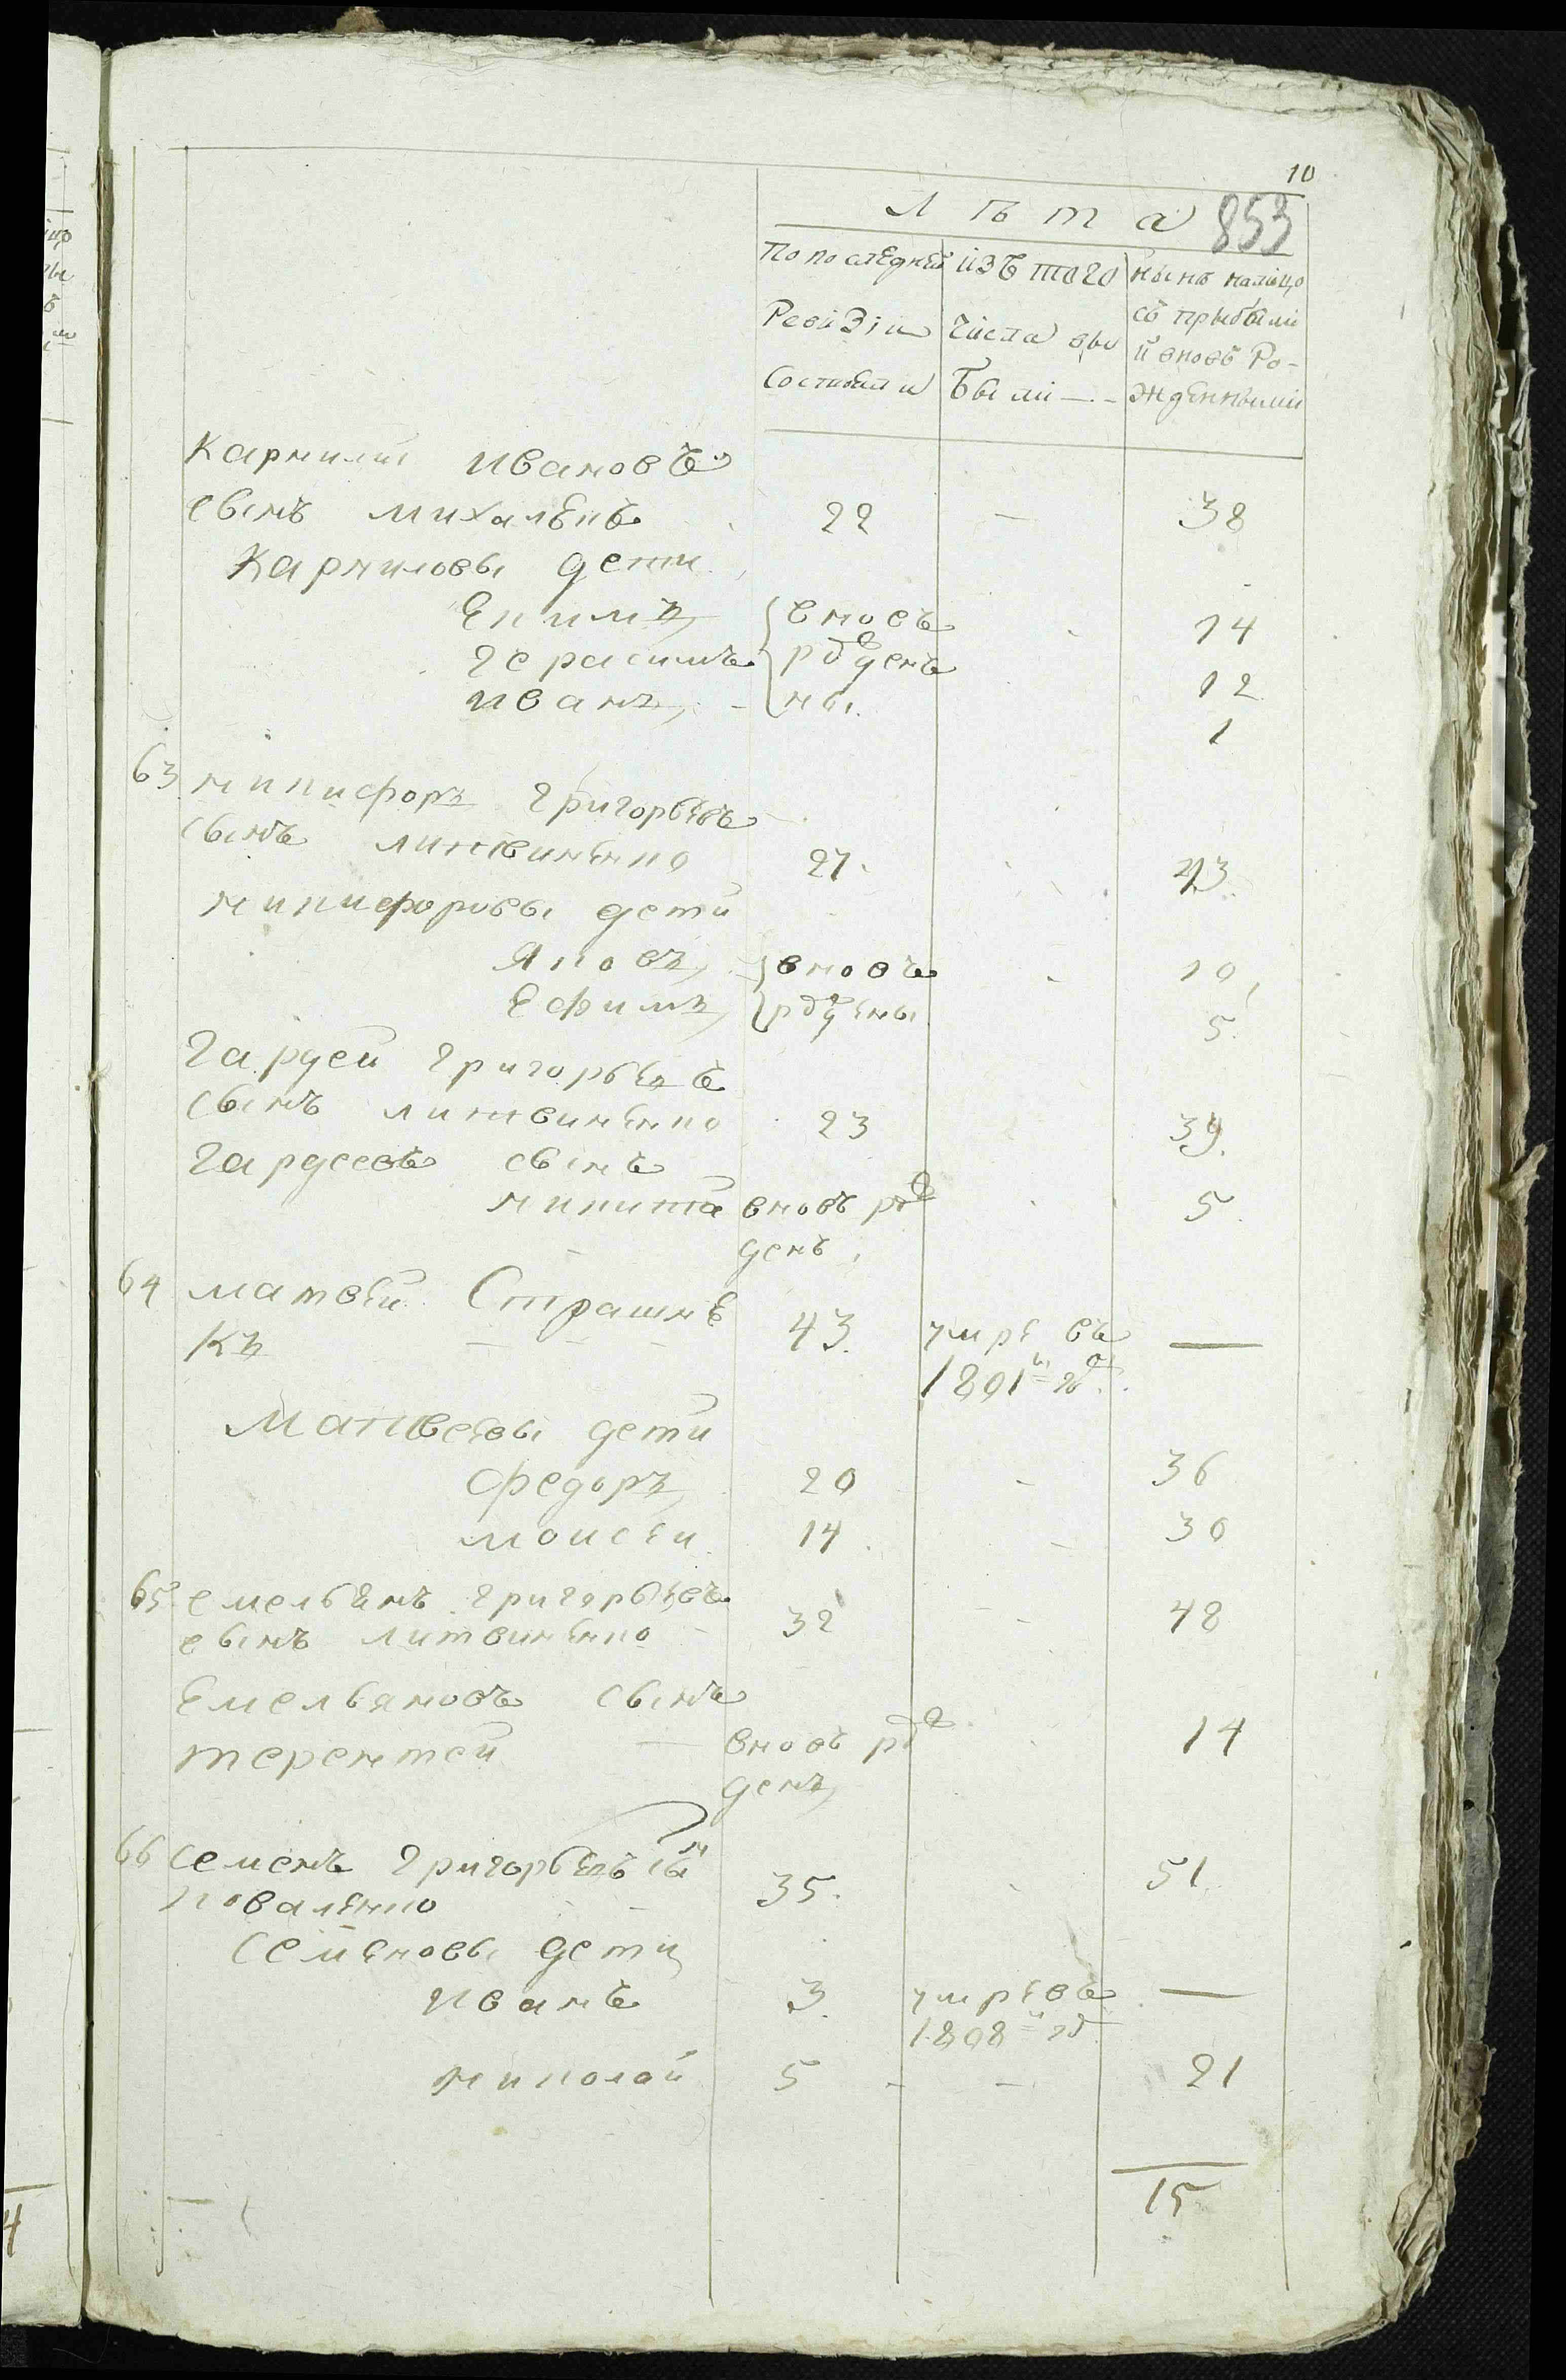 10
Лѣта 853
По последней изъ того нынѣ налицо
Ревизіи числа вы съ прибылы
Состояли были — и вновь Ро-
жденными
Карнилий Ивановъ
сынъ михаленъко 22 — 38
Карниловы дети
Екимъ вновь 14
Герасимъ рожденъ 12
Иванъ ны 1
63 никифоръ Григорьевъ
сынъ литвиненко 27 43
никифоровы дети
Яковъ вновь 10
Ефимъ рождены 5
Гардей Григорьевъ
сынъ литвиненко 23 39
Гардеевъ сынъ
никита вновь рож 5
денъ
64 матвей Страшне
Къ 43 умре въ —
1801м год
Матвеевы дети
Федоръ 20 36
моисеи 14 30
65 емельянъ Григорьевъ
сынъ литвиненко 32 48
Емельяновъ сынъ
терентей вновь рож 14
денъ
66 Семенъ Григорьевъ сын
коваленко 35 51
Семеновы дети
Иванъ 3 умре въ —
1808м год
николай 5 — — 21
15